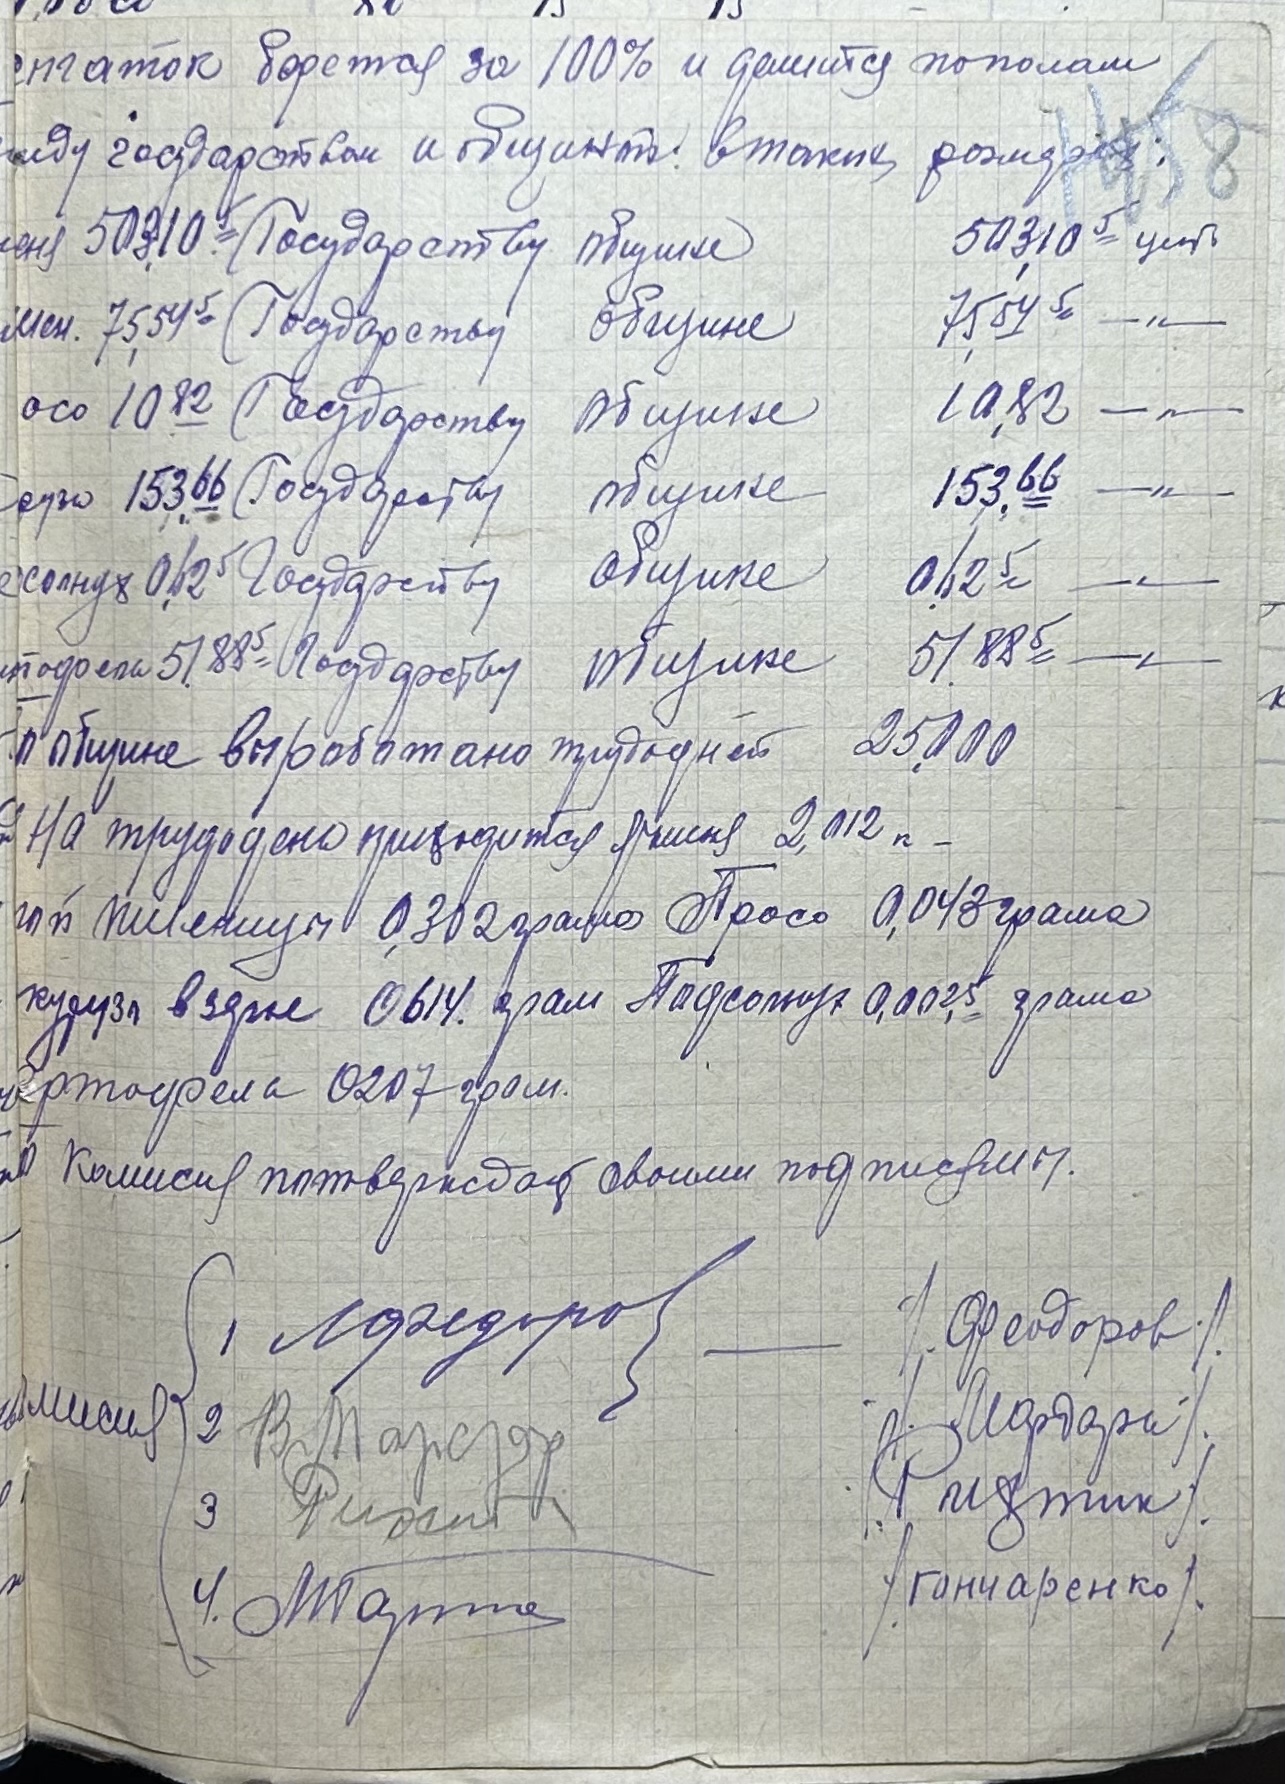 статок берется за 100% и делится пополам
жду государством и общиной: в таких размерах:
1458
меня 503,10⁵ Государству общине 503,10⁵ цент
мен. 75,54⁵ Государству общине 75,54⁵ —"—
осо 10 82 Государству общине 10,82 —"—
153,66 Государству общине 153,66 —"—
солнух 0,62⁵ Государству общине 0,62⁵ —"—
тофеля 51,88⁵ Государству общине 51,88⁵ —"—
общине выработано трудодней 25,000
На трудодень приходится Ячменя 2,012 к –
пшеницы 0,302 грама Просо 0,043 грама
куруза в зерне 0614. грам Падсолнух 0,0025 грама
ртофела 0207 грам.
Комисия потверждает своими подписями.
1 — /. Феодоров /.
мисия
2 /. Мардарь /.
3 /.
4. /. гончаренко /.